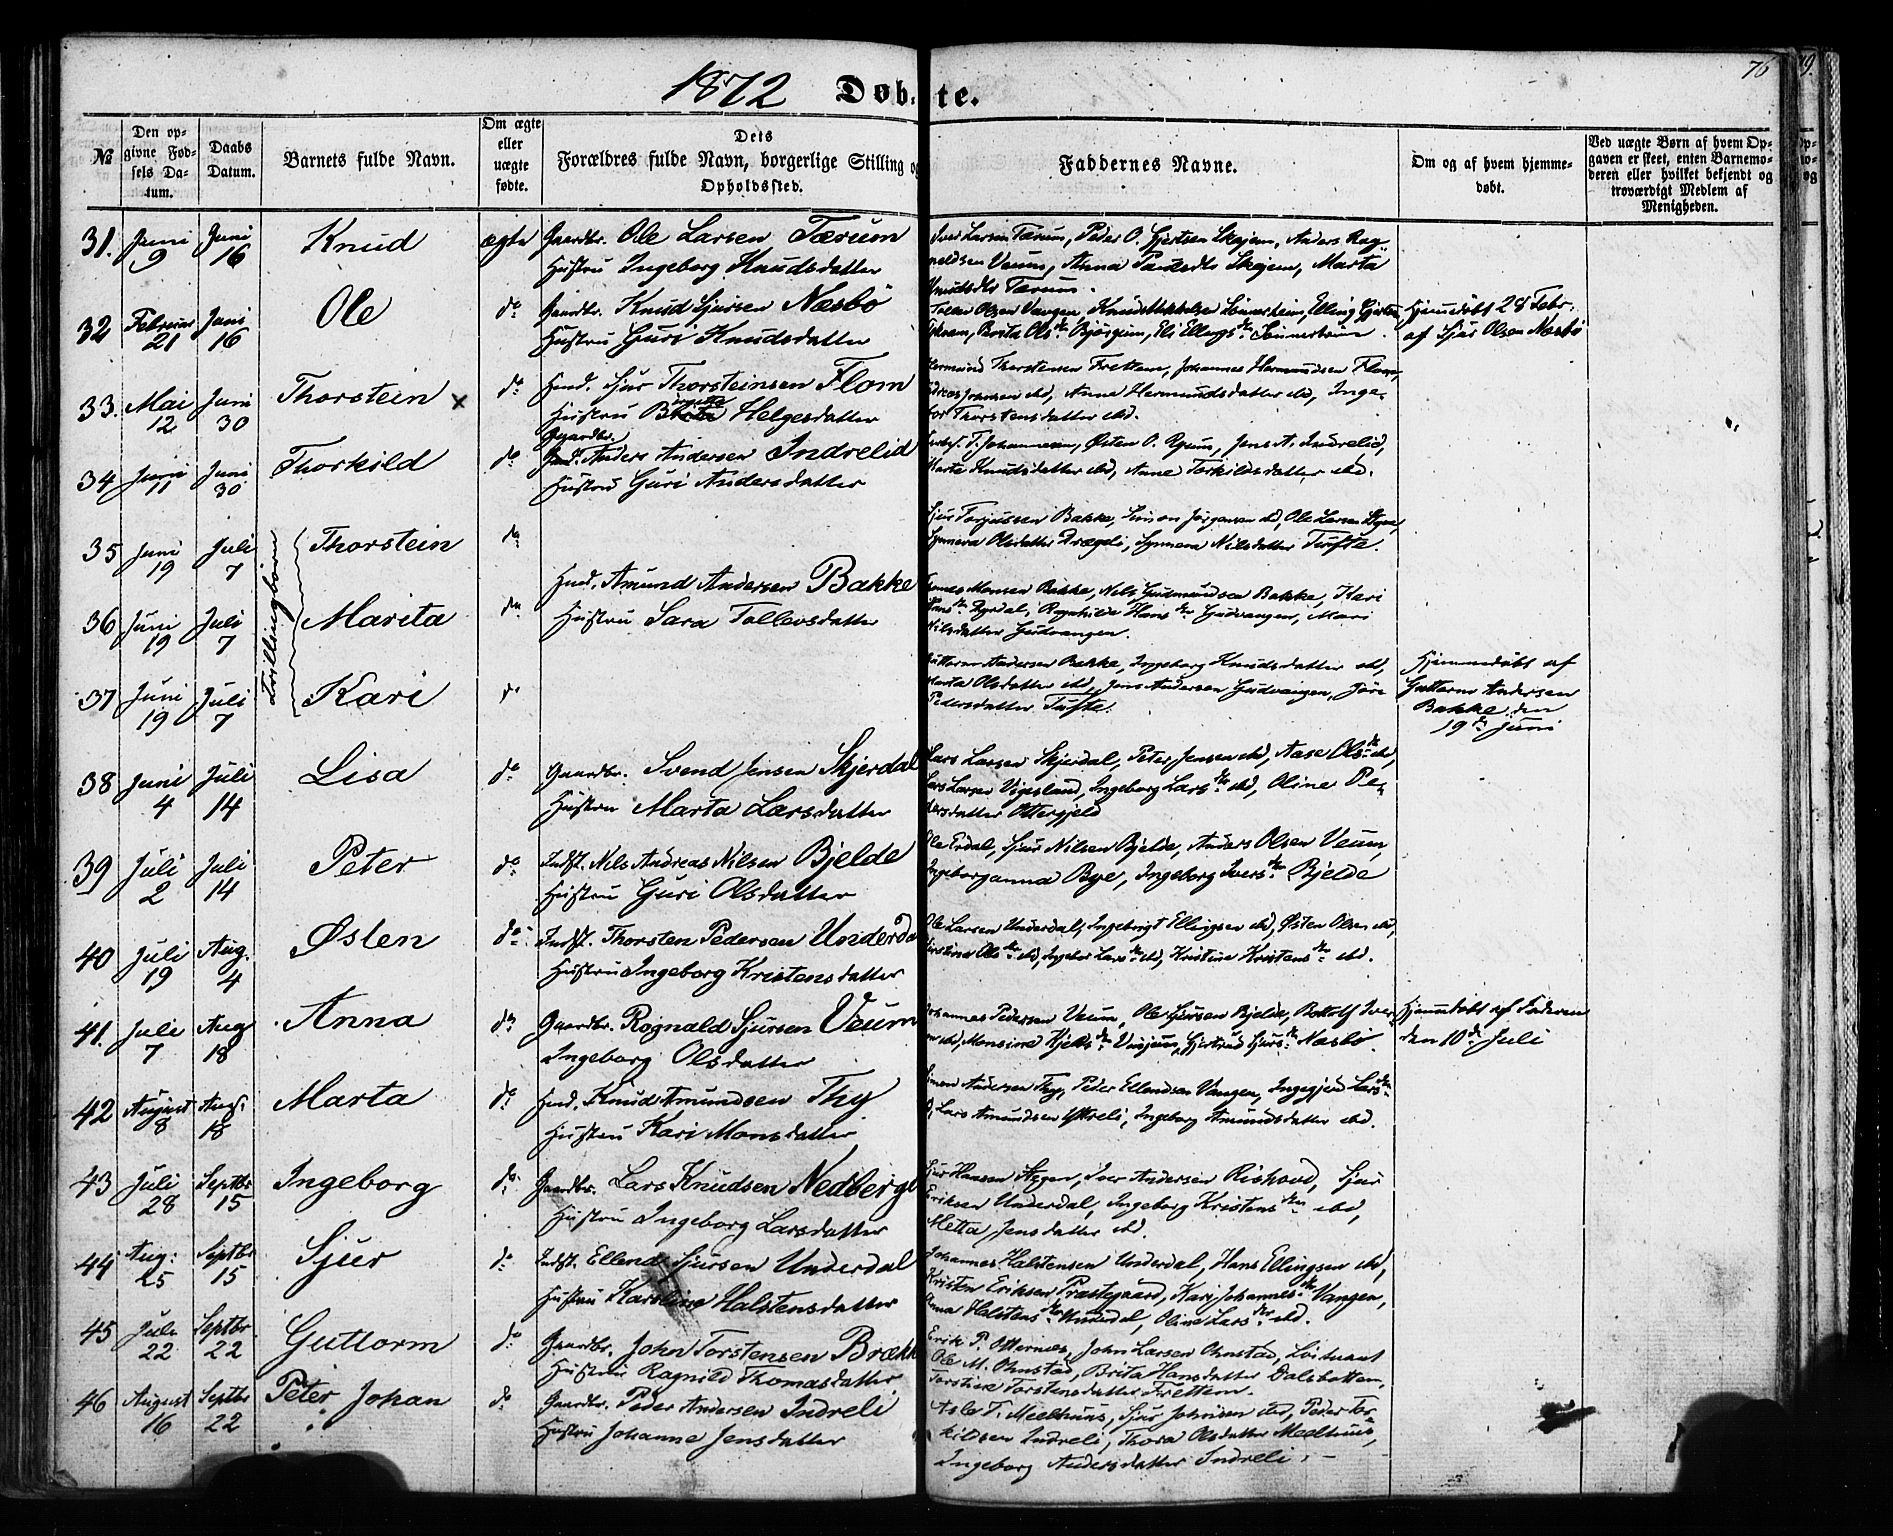 1872 Døb-te. 76
№
Den op-
givne Fød-
sels Da-
tum.
Daabs
Datum.
Barnets fulde Navn.
Om ægte
eller
uægte
fødte.
Dets
Forældres fulde Navn, borgerlige Stilling og
Opholdssted.
Faddernes Navne.
Om og af hvem hjemme-
døbt.
Ved uægte Børn af hvem Op-
gaven er skeet, enten Barnemo-
deren eller hvilket bekjendt og
troværdigt Medlem af
Menigheden.
31. Juni 9 Juni 16 Knud ægte Gaardbr. Ole Larsen Tærum
Hustru Ingeborg Knudsdatter
Iver Larsen Tærum, Peder O. Gjertsen Skajem, Anders Rag-
neldsen Veum, Anna Skajem, Marta
Knudsdtr Tærum.
32 Februar 21 Juni 16 Ole do Gaardbr. Knud Sjursen Næsbø
Hustru Guri Knudsdatter
Olsen Vangen, Elling Gjertsen
Brita Olsdr Bjørgum, Eli Ellingsdr
Hjemmedøbt 28 Febr.
af Sjur Olsen Næsbø
33. Mai 12 Juni 30 Thorstein x do Huusd. Sjur Thorsteinsen Flom
Hustru Helgesdatter
Hermund Thorstensen Frettem, Johannes Hermundsen Flom,
ibd, Anna Hermundsdatter ibd, Inge-
bor Thorstensdatter ibd.
34 Juni 11 Juni 30 Thorkild do Gaardbr.
Anders Andersen Indrelid
Hustru Guri Andersdatter
T. Johannesen, Østen O. Ryum, Jens A. Indrelid,
Marta Knudsdatter ibd, Anne Torkildsdatter ibd.
Trillingbørn
35 Juni 19 Juli 7 Thorstein do
Sjur Torjussen Bakke, Simon Jørgensen ibd, Ole Larsen Styve,
Synneva Olsdatter Drægeli, Synneva Nilsdatter Tufte.
36 Juni 19 Juli 7 Marita do Huusd. Amund Andersen Bakke
Hustru Sara Tollevsdatter
Monsen Bakke, Nils Gudmundsen Bakke, Kari
Dyrdal, Ragnhilda Hansdr Gudvangen, Mari
Nilsdatter Gudvangen.
37 Juni 19 Juli 7 Kari do
Guttorm Andersen Bakke, Ingeborg Knudsdatter ibd,
Marta Olsdatter ibd, Jens Andersen Gudvangen, Jøri
Pedersdatter Tufte.
Hjemmedøbt af
Guttorm Andersen
Bakke den
19de Juni
38 Juni 4 Juli 14 Lisa do Gaardbr. Svend Jensen Skjerdal
Hustru Marta Larsdatter
Lars Larsen Skjerdal, Peter Jensen ibd, Aase Olsdr ibd,
Lars Larsen Vigesland, Ingeborg Larsdr ibd, Oline Pe-
dersdatter Ottergjeld
39 Juli 2 Juli 14 Peter do Indst. Nils Andreas Nilsen Bjelde
Hustru Guri Olsdatter
Ole Erdal, Sjur Nilsen Bjelde, Anders Olsen Veum,
Ingeborganna Bye, Ingeborg Iversdr Bjelde
40 Juli 19 Aug. 4 Østen do Indst. Thorsten Pedersen Underda
Hustru Ingeborg Kristensdatter
Ole Larsen Underdal, Ingebrigt Ellingsen ibd, Østen Olsen ibd,
Kirstina Olsdr ibd, Ingebor Larsdr ibd, Kristine Kristensdr ibd.
41. Juli 7 Aug 18 Anna do Gaardbr. Rognald Sjursen Veum
Ingeborg Olsdatter
Johannes Pedersen Veum, Ole Sjursen Bjelde, Botolf Iver-
sen ibd, Monsine Gjertrud Sjursdr Næsbø.
Hjemmedøbt af Faderen
den 10de Juli
42 August 8 Aug. 18 Marta do Huusd. Knud Amundsen Thy
Hustru Kari Monsdatter
Simon Andersen Thy, Peder Ellendsen Vangen, Ingegjerd Larsdr
Lars Amundsen Ytreli, Ingeborg Amundsdatter ibd.
43 Juli 28 Septbr 15 Ingeborg do Gaardbr. Lars Knudsen Nedberge
Hustru Ingeborg Larsdatter
Sjur Hansen Stegen, Iver Andersen Rishovd, Sjur
Eriksen Underdal, Ingeborg Kristensdr ibd,
Metta Jensdatter ibd
44 Aug: 25 Septbr 15 Sjur do Indst. Ellend Sjursen Underdal
Hustru Karoline Halstensdatter
Johannes Halstensen Underdal, Hans Ellingsen ibd,
Kristen Eriksen Præstegaard, Kari Johannesdr Vangen,
Anna Halstensdr Underdal, Oline Larsdr ibd.
45 Juli 22 Septbr. 22 Guttorm do Gaardbr. John Torstensen Brækk
Hustru Ragnild Thomasdatter
Erik P. Otternes, John Larsen Ohnstad, Løitnant
Ole M. Ohnstad, Brita Hansdatter Dalsbotten,
Torstensdatter Frettem.
46 August 16 Septbr 22 Peter Johan do Gaardbr. Peder Andersen Indreli
Hustru Johanne Jensdatter
Asle T. Meelhuus, Sjur Johnsen ibd, Peder Tor-
kildsen Indreli, Thora Olsdatter Meelhuus,
Ingeborg Andersdatter Indreli.